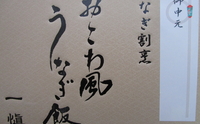 御中元
なぎ割烹
おこわ風
うなぎ飯
一愼